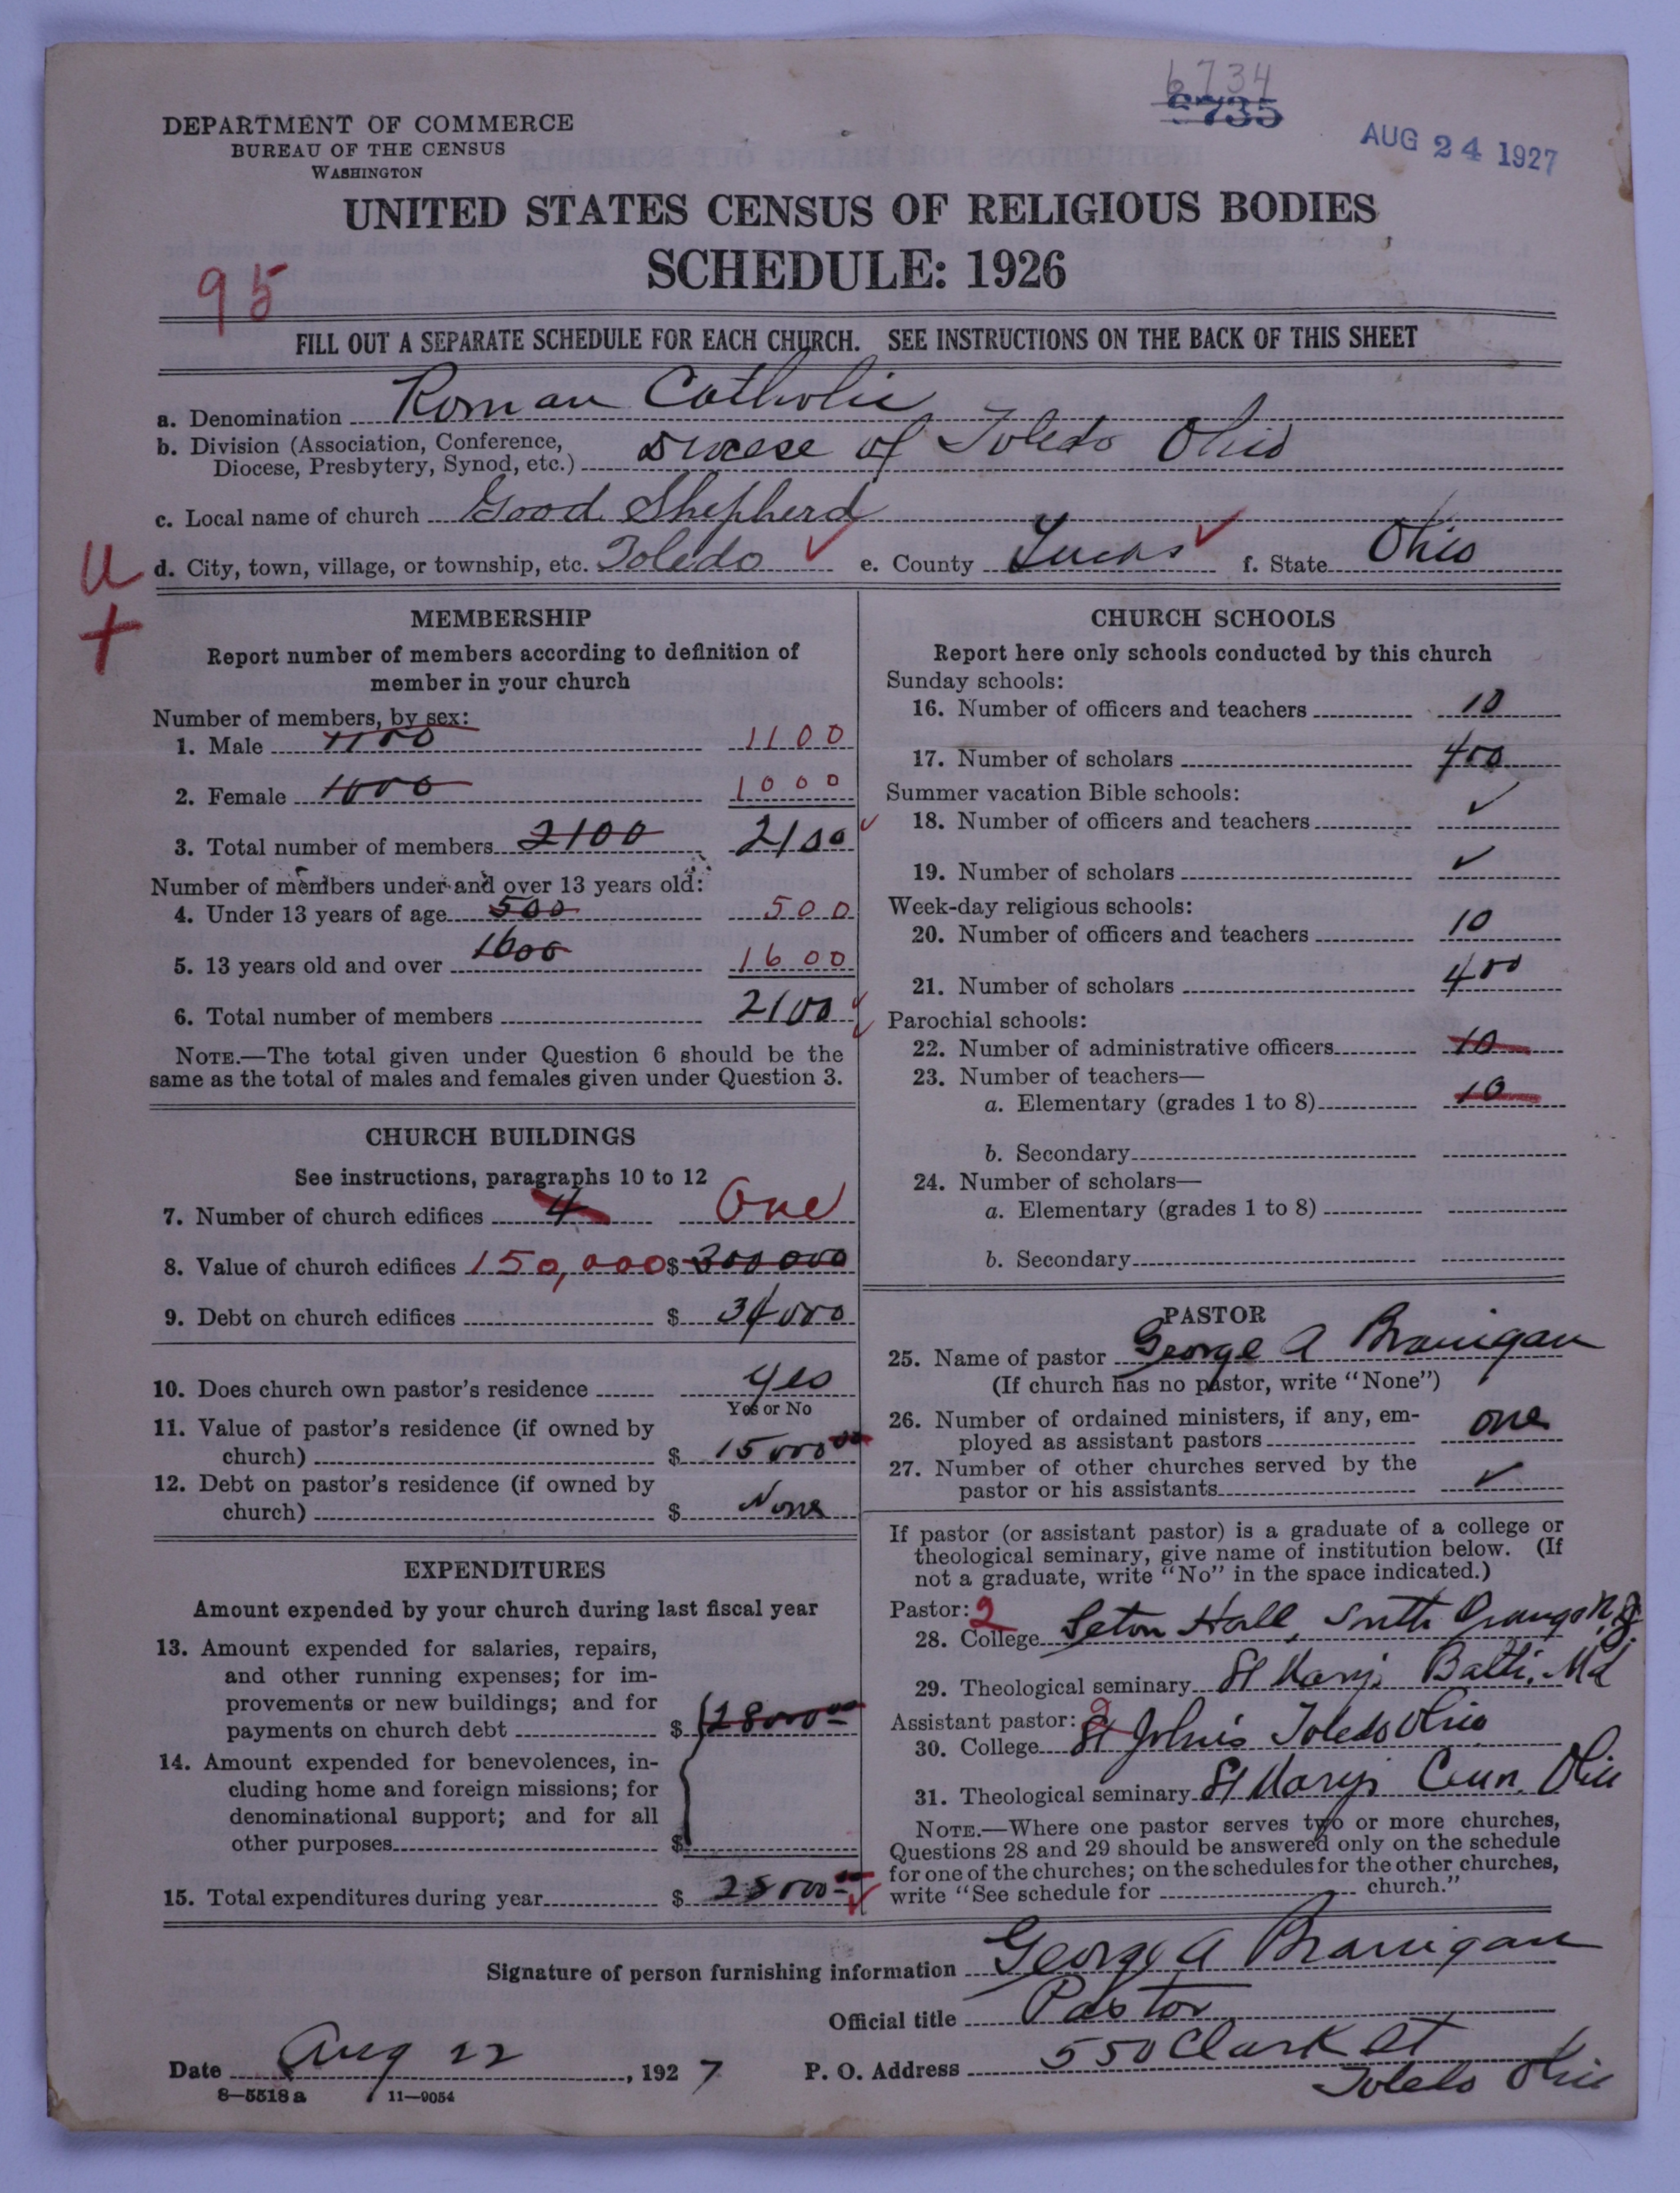 6734
6735
AUG 24 1927
DEPARTMENT OF COMMERCE
BUREAU OF THE CENSUS
WASHINGTON
UNITED STATES CENSUS OF RELIGIOUS BODIES
SCHEDULE: 1926
95
FILL OUT A SEPARATE SCHEDULE FOR EACH CHURCH. SEE INSTRUCTIONS ON THE BACK OF THIS SHEET
a. Denomination Roman Catholic
b. Division (Association, Conference,
Diocese, Presbytery, Synod, etc.) Diocese of Toledo Ohio
c. Local name of church Good Shepherd
U d. City, town, village, or township, etc. Toledo ✓ e. County Lucas ✓ f. State Ohio
+
MEMBERSHIP
Report number of members according to definition of
member in your church
Number of members, by sex:
1. Male 1100 1100
2. Female 1000 1000
3. Total number of members 2100 2100 ✓
Number of members under and over 13 years old:
4. Under 13 years of age 500 500
5. 13 years old and over 1600 1600
6. Total number of members 2100 ✓
NOTE.—The total given under Question 6 should be the
same as the total of males and females given under Question 3.
CHURCH BUILDINGS
See instructions, paragraphs 10 to 12
7. Number of church edifices 4 One
8. Value of church edifices 150,000 $ 300000
9. Debt on church edifices $ 34000
10. Does church own pastor's residence Yes
Yes or No
11. Value of pastor's residence (if owned by
church) $ 15000 00
12. Debt on pastor's residence (if owned by
church) $ None
EXPENDITURES
Amount expended by your church during last fiscal year
13. Amount expended for salaries, repairs,
and other running expenses; for im-
provements or new buildings; and for
payments on church debt $ 28000 00
14. Amount expended for benevolences, in-
cluding home and foreign missions; for
denominational support; and for all
other purposes $
15. Total expenditures during year $ 28000 00 ✓
CHURCH SCHOOLS
Report here only schools conducted by this church
Sunday schools:
16. Number of officers and teachers 10
17. Number of scholars 400
Summer vacation Bible schools:
18. Number of officers and teachers ✓
19. Number of scholars ✓
Week-day religious schools:
20. Number of officers and teachers 10
21. Number of scholars 400
Parochial schools:
22. Number of administrative officers 10
23. Number of teachers—
a. Elementary (grades 1 to 8) 10
b. Secondary
24. Number of scholars—
a. Elementary (grades 1 to 8)
b. Secondary
PASTOR
25. Name of pastor George A Branigan
(If church has no pastor, write "None")
26. Number of ordained ministers, if any, em-
ployed as assistant pastors one
27. Number of other churches served by the
pastor or his assistants ✓
If pastor (or assistant pastor) is a graduate of a college or
theological seminary, give name of institution below. (If
not a graduate, write "No" in the space indicated.)
Pastor: 2
28. College Seton Hall, South Orange N.J.
29. Theological seminary St Marys Balti. Md
Assistant pastor: 2
30. College St John's Toledo Ohio
31. Theological seminary St Marys Cinn. Ohio
NOTE.—Where one pastor serves two or more churches,
Questions 28 and 29 should be answered only on the schedule
for one of the churches; on the schedules for the other churches,
write "See schedule for church."
Signature of person furnishing information George A Branigan
Official title Pastor
Date Aug 22, 1927 P. O. Address 550 Clark St
Toledo Ohio
8—5518 a 11—9054